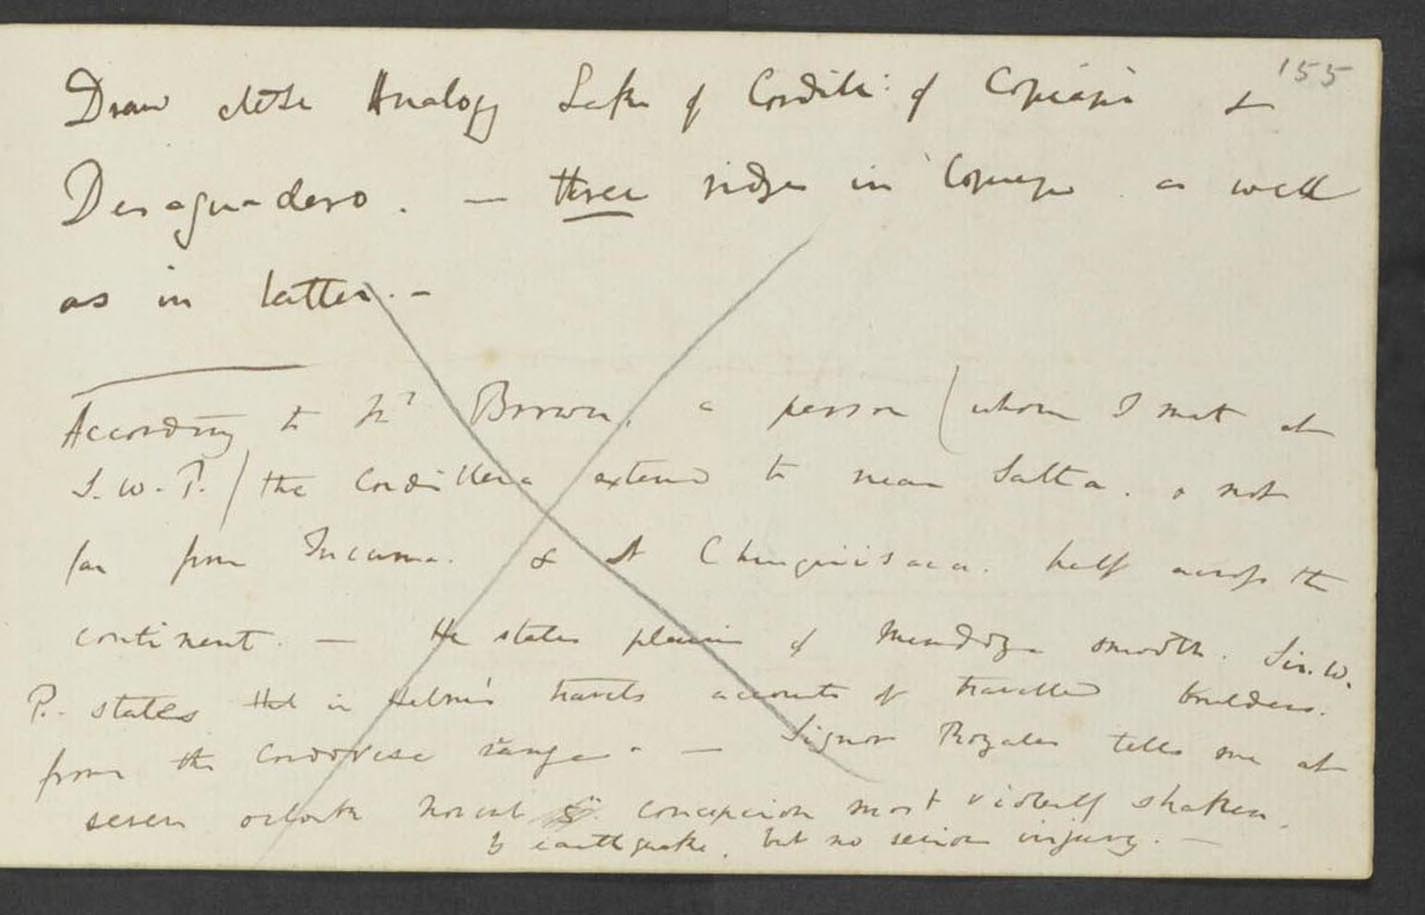 155
Draw close Analogy Lake of Cordill: of Copiapò &
Desaguadero. — three ridges in Copiapo as well
as in latter. —
According to Mr Brown, a person (whom I met at
S. W. P.) the Cordillera extend to near Salta. & not
far from Tucuma. & at Chuquisaca. half across the
continent. — He states plain of Mendoza smooth. Sir. W.
P. states that in Helms's travels accounts of travelled boulders.
from the Cordovese range. — Signor Rozales tells me at
seven oclock Novem Concepcion most violently shaken.
by earthquake, but no serious injury. —